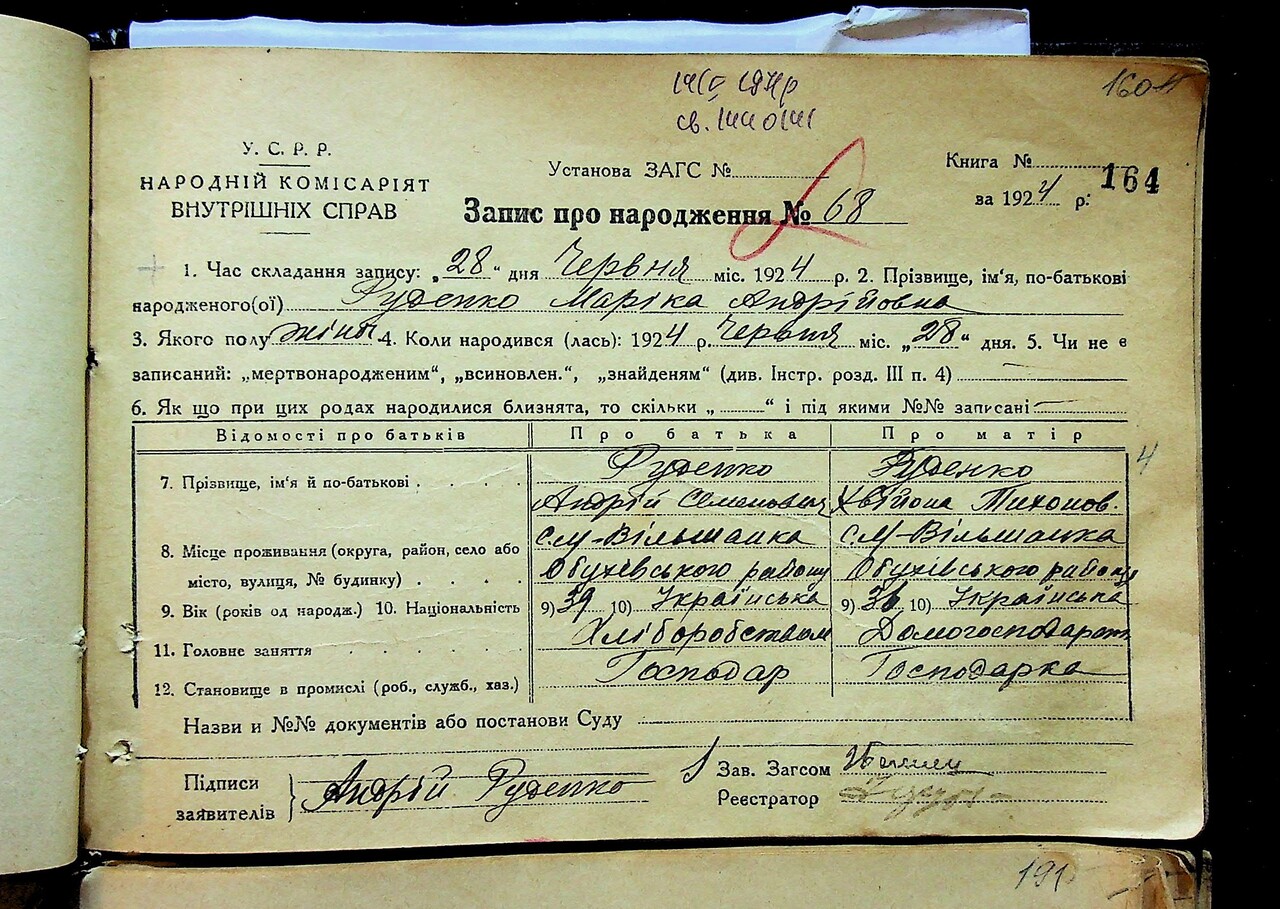 160
св.
У. С. Р. Р.
НАРОДНІЙ КОМІСАРІЯТ
ВНУТРІШНІХ СПРАВ
Установа ЗАГС №
Книга №
164
за 1924 р.
Запис про народження № 68
1. Час складання запису: „28“ дня Червня міс. 1924 р. 2. Прізвище, ім'я, по-батькові
народженого(ої) Руденко Маріка Андрійовна
3. Якого полу жіноч 4. Коли народився (лась): 1924 р. Червня міс. „28“ дня. 5. Чи не є
записаний: „мертвонародженим“, „всиновлен.“, „знайденям“ (див. Інстр. розд. III п. 4)
6. Як що при цих родах народилися близнята, то скільки „ “ і під якими №№ записані
Відомості про батьків Про батька Про матір
4
7. Прізвище, ім'я й по-батькові Руденко Андрій Семенович Руденко Тихонов.
8. Місце проживання (округа, район, село або
місто, вулиця, № будинку) см-Вільшанка Обухівського району см-Вільшанка Обухівського району
9. Вік (років од народж.) 10. Національність 9) 39 10) Українська 9) 36 10) Українська
11. Головне заняття Хліборобством Домогосподарств
12. Становище в промислі (роб., служб., хаз.) Господар Господарка
Назви и №№ документів або постанови Суду
Підписи
заявителів Андрій Руденко
Зав. Загсом
Реєстратор
191